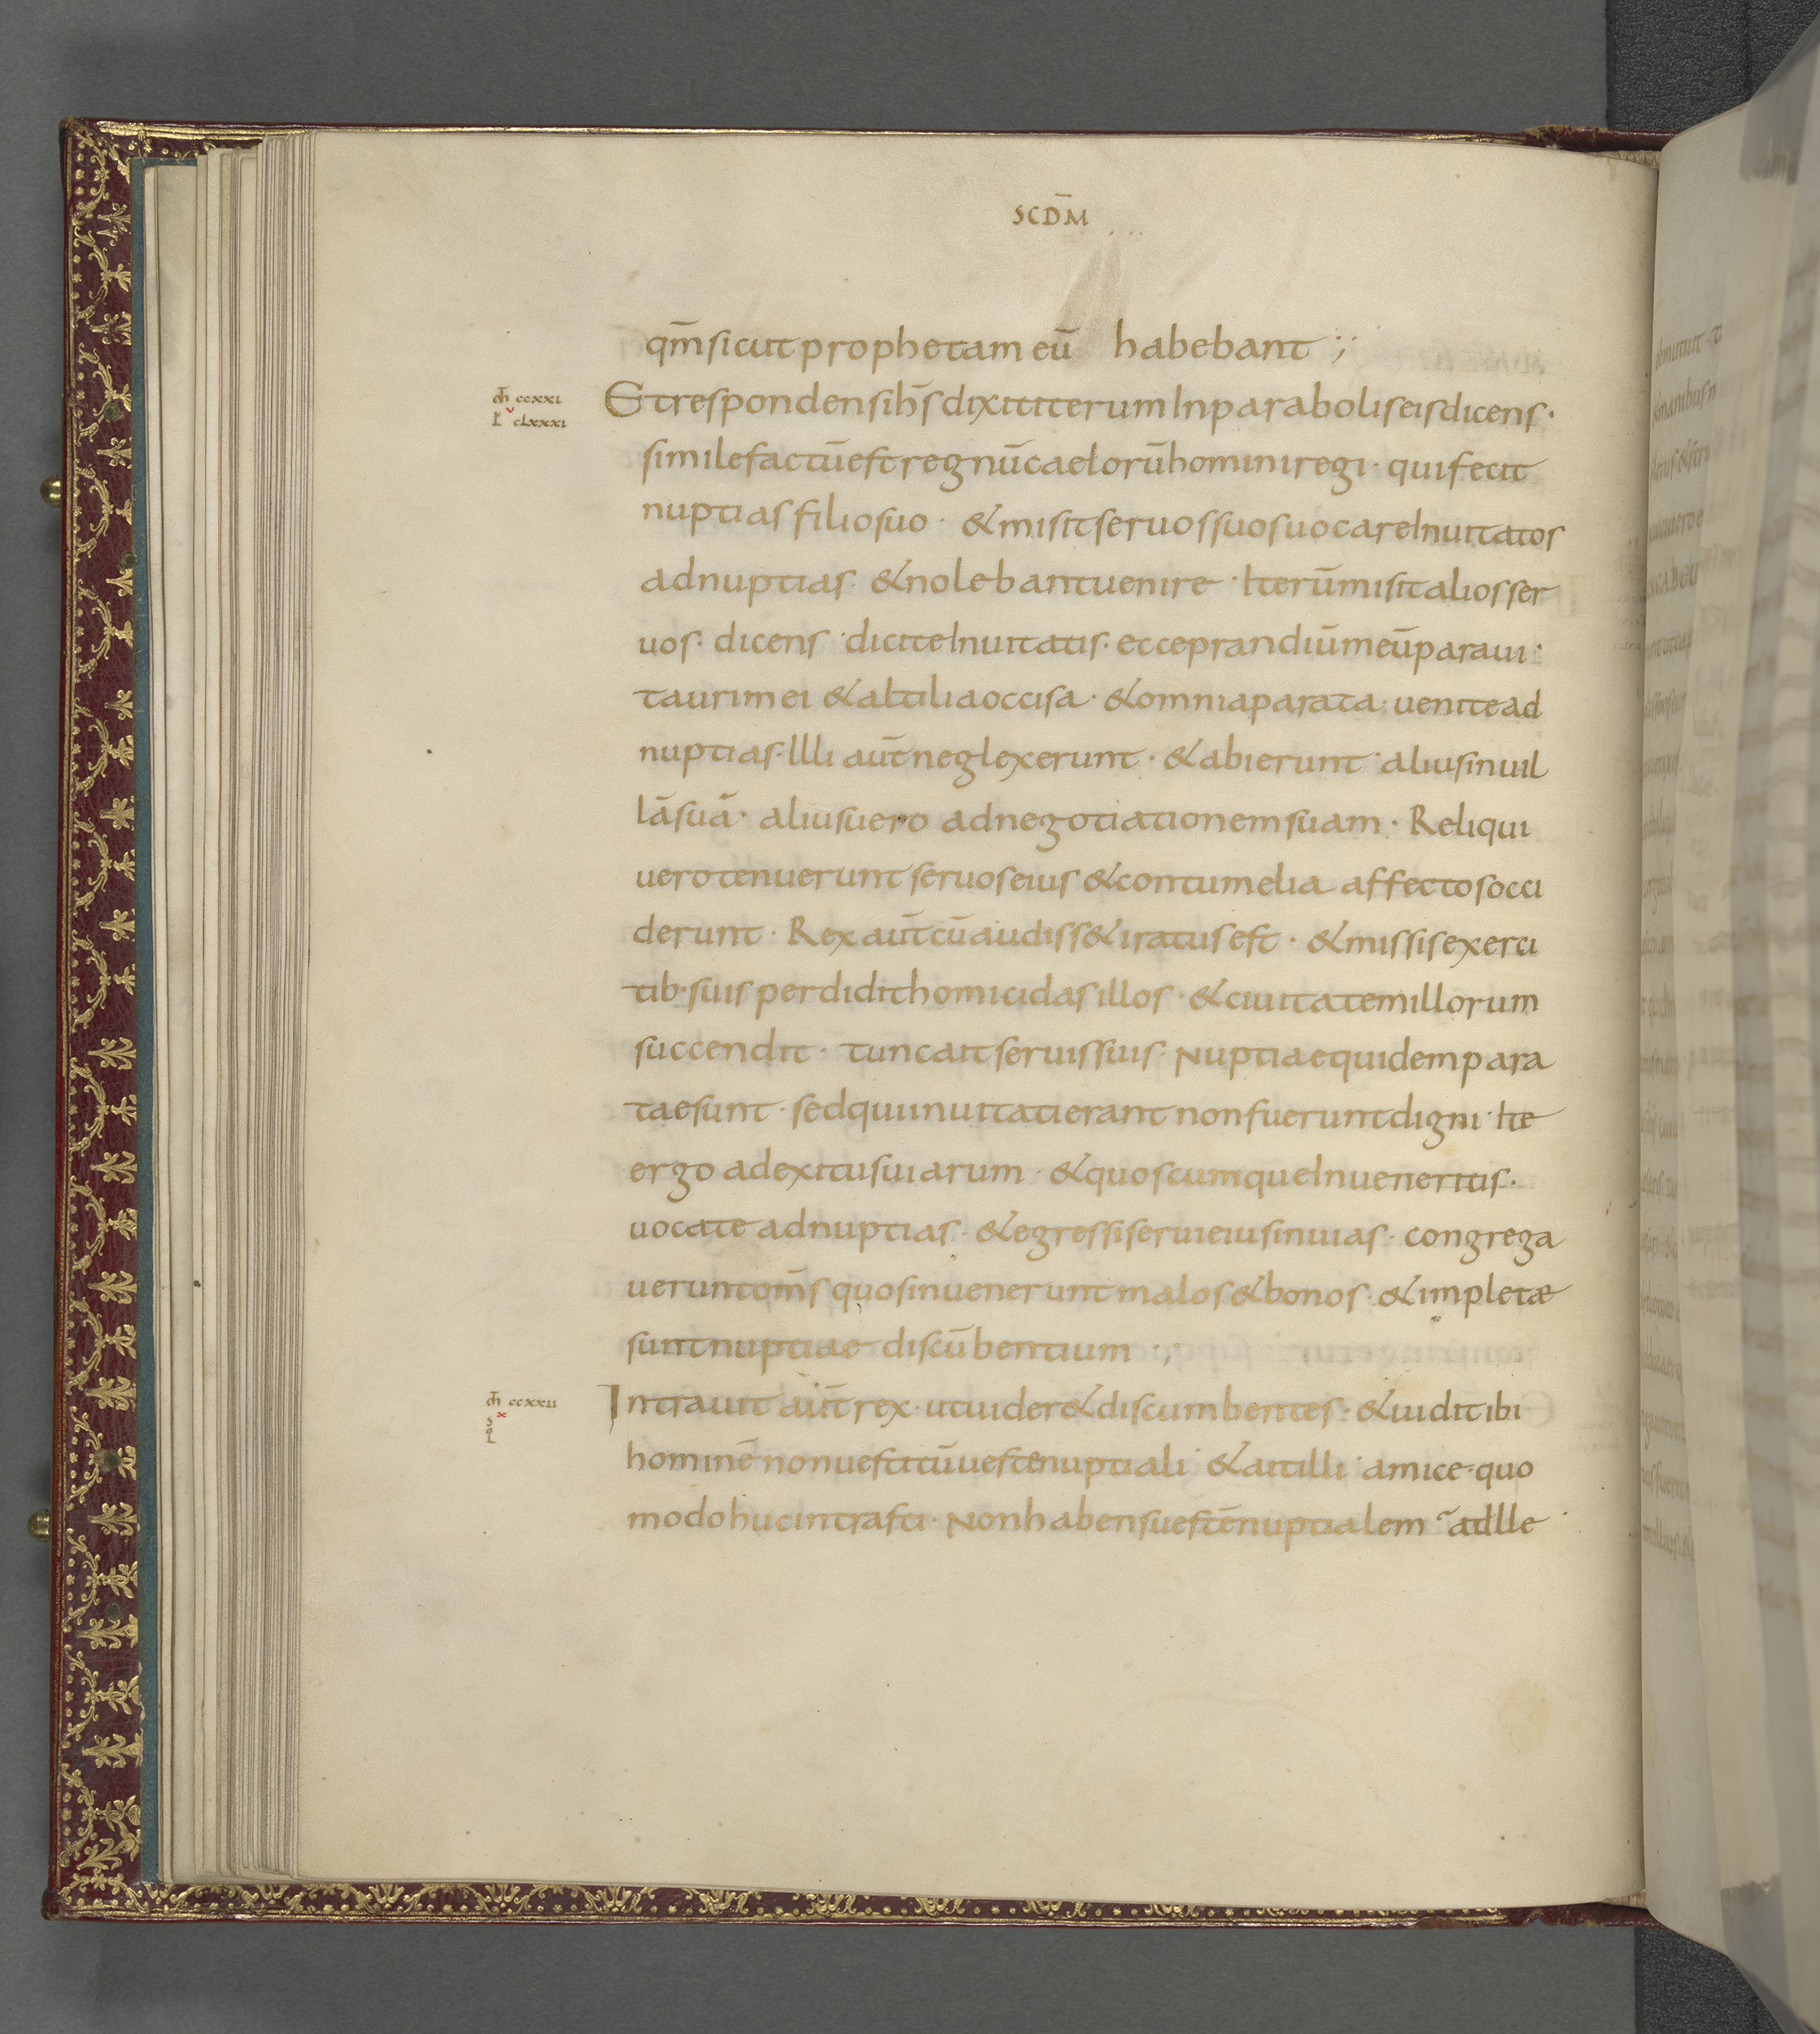 SCD̄M
qm̄ sicut prophetam eū habebant ;
m̄ ccxxi
L v clxxxi
Et respondens ih̄s dixit iterum In parabolis eis dicens ·
simile factū est regnū caelorū homini regi · qui fecit
nuptias filio suo · & misit seruos suos uocare Inuitatos
ad nuptias · & nolebant uenire · Iterū misit alios ser
uos · dicens · dicite Inuitatis · ecce prandiū meū paraui ·
tauri mei & altilia occisa · & omnia parata · uenite ad
nuptias · Illi aūt neglexerunt · & abierunt · alius in uil
lā suā · alius uero ad negotiationem suam · Reliqui
uero tenuerunt seruos eius & contumelia affectos occi
derunt · Rex aūt cū audiss& iratus est · & missis exerci
tib· suis perdidit homicidas illos · & ciuitatem illorum
succendit · tunc ait seruis suis · Nuptiae quidem para
tae sunt · sed qui inuitati erant non fuerunt digni · Ite
ergo ad exitus uiarum · & quoscumque Inueneritis ·
uocate ad nuptias · & egressi serui eius in uias · congrega
uerunt om̄s quos inuenerunt malos & bonos · & impletæ
sunt nuptiae discūbentium ;
m̄ ccxxii
x
Intrauit aūt rex · ut uider& discumbentes · & uidit ibi
hominē non uestitū ueste nuptiali · & ait illi · amice · quo
modo huc intrasti · Non habens uestē nuptialem · at Ille